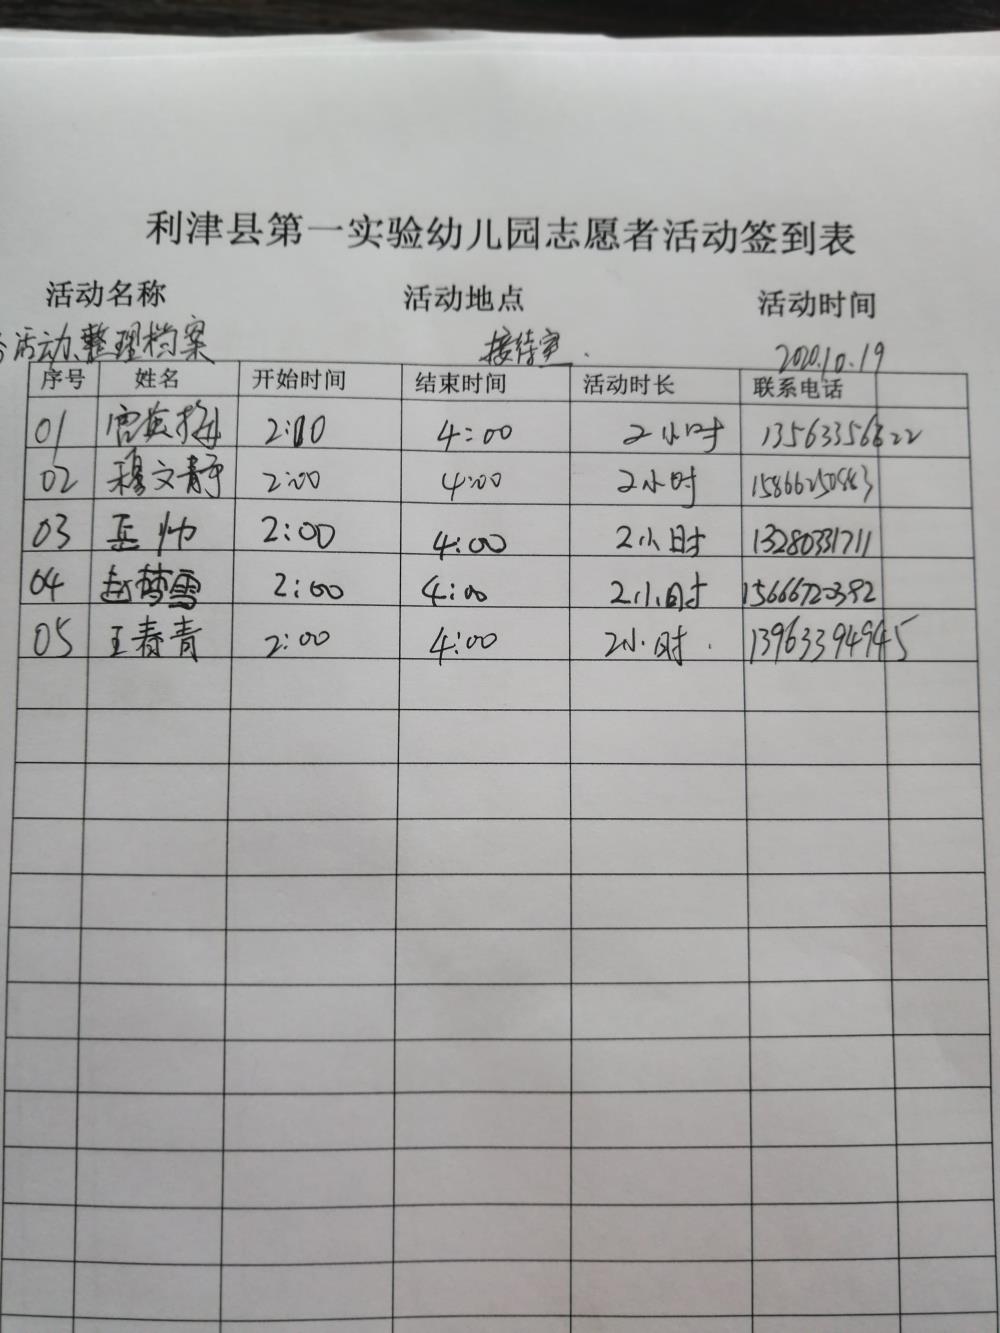 利津县第一实验幼儿园志愿者活动签到表
活动名称 活动地点 活动时间
活动、整理档案 接待室. 2020.10.19
序号 姓名 开始时间 结束时间 活动时长 联系电话
01 2:00 4:00 2小时 13563356822
02 穆文静 2:00 4:00 2小时
03 岳帅 2:00 4:00 2小时 13280331711
04 赵梦雪 2:00 4:00 2小时 15666720392
05 王春青 2:00 4:00 2小时. 13963394945